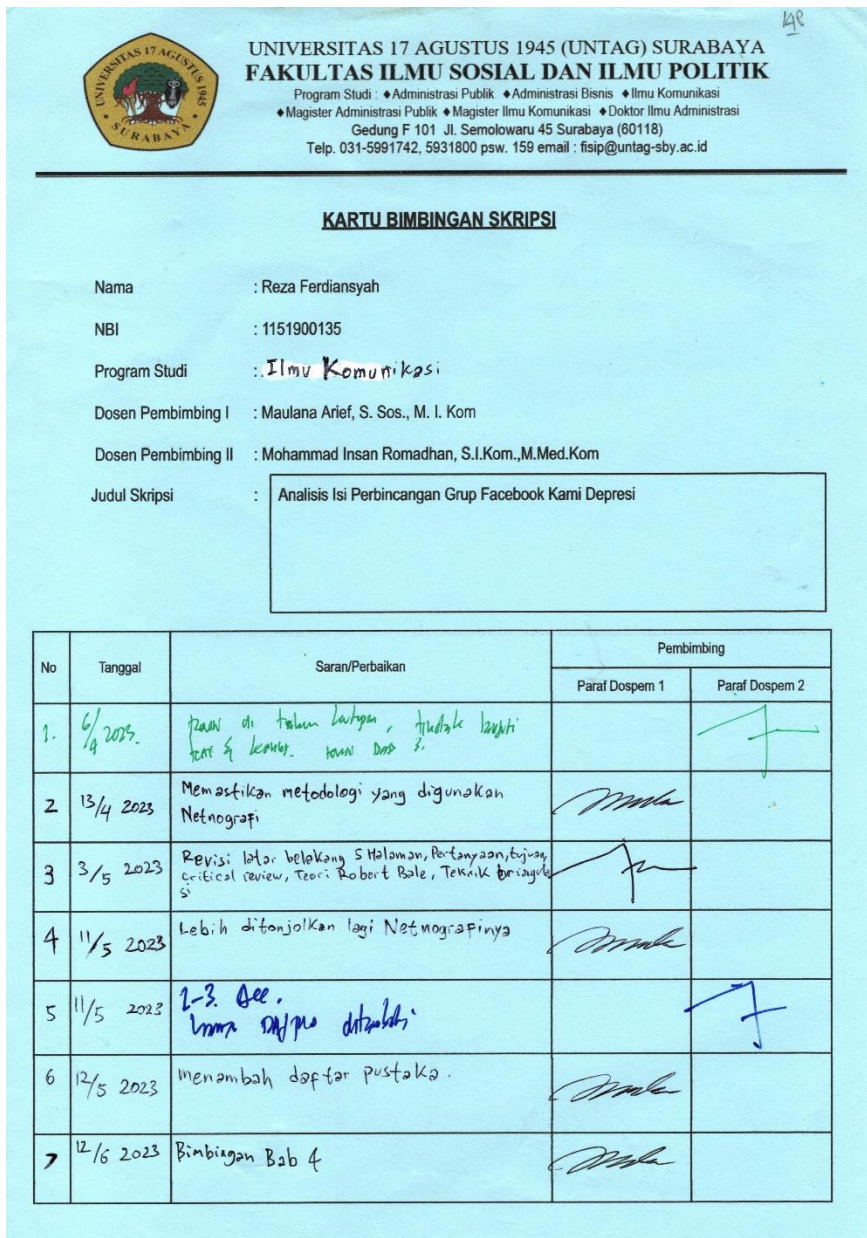 149
UNIVERSITAS 17 AGUSTUS 1945
SURABAYA
UNIVERSITAS 17 AGUSTUS 1945 (UNTAG) SURABAYA
FAKULTAS ILMU SOSIAL DAN ILMU POLITIK
Program Studi : ♦Administrasi Publik ♦Administrasi Bisnis ♦Ilmu Komunikasi
♦Magister Administrasi Publik ♦Magister Ilmu Komunikasi ♦Doktor Ilmu Administrasi
Gedung F 101 Jl. Semolowaru 45 Surabaya (60118)
Telp. 031-5991742, 5931800 psw. 159 email : fisip@untag-sby.ac.id
KARTU BIMBINGAN SKRIPSI
Nama : Reza Ferdiansyah
NBI : 1151900135
Program Studi : Ilmu Komunikasi
Dosen Pembimbing I : Maulana Arief, S. Sos., M. I. Kom
Dosen Pembimbing II : Mohammad Insan Romadhan, S.I.Kom.,M.Med.Kom
Judul Skripsi : Analisis Isi Perbincangan Grup Facebook Kami Depresi
No Tanggal Saran/Perbaikan Pembimbing
Paraf Dospem 1 Paraf Dospem 2
1. 6/4 2023.
2 13/4 2023 Memastikan metodologi yang digunakan
Netnografi
3 3/5 2023 Revisi latar belakang 5 Halaman, Pertanyaan, tujuan,
critical review, Teori Robert Bale, Teknik triangula
si
4 11/5 2023 Lebih ditonjolkan lagi Netnografinya
5 11/5 2023 1-3. Acc.
6 12/5 2023 menambah daftar pustaka.
7 12/6 2023 Bimbingan Bab 4